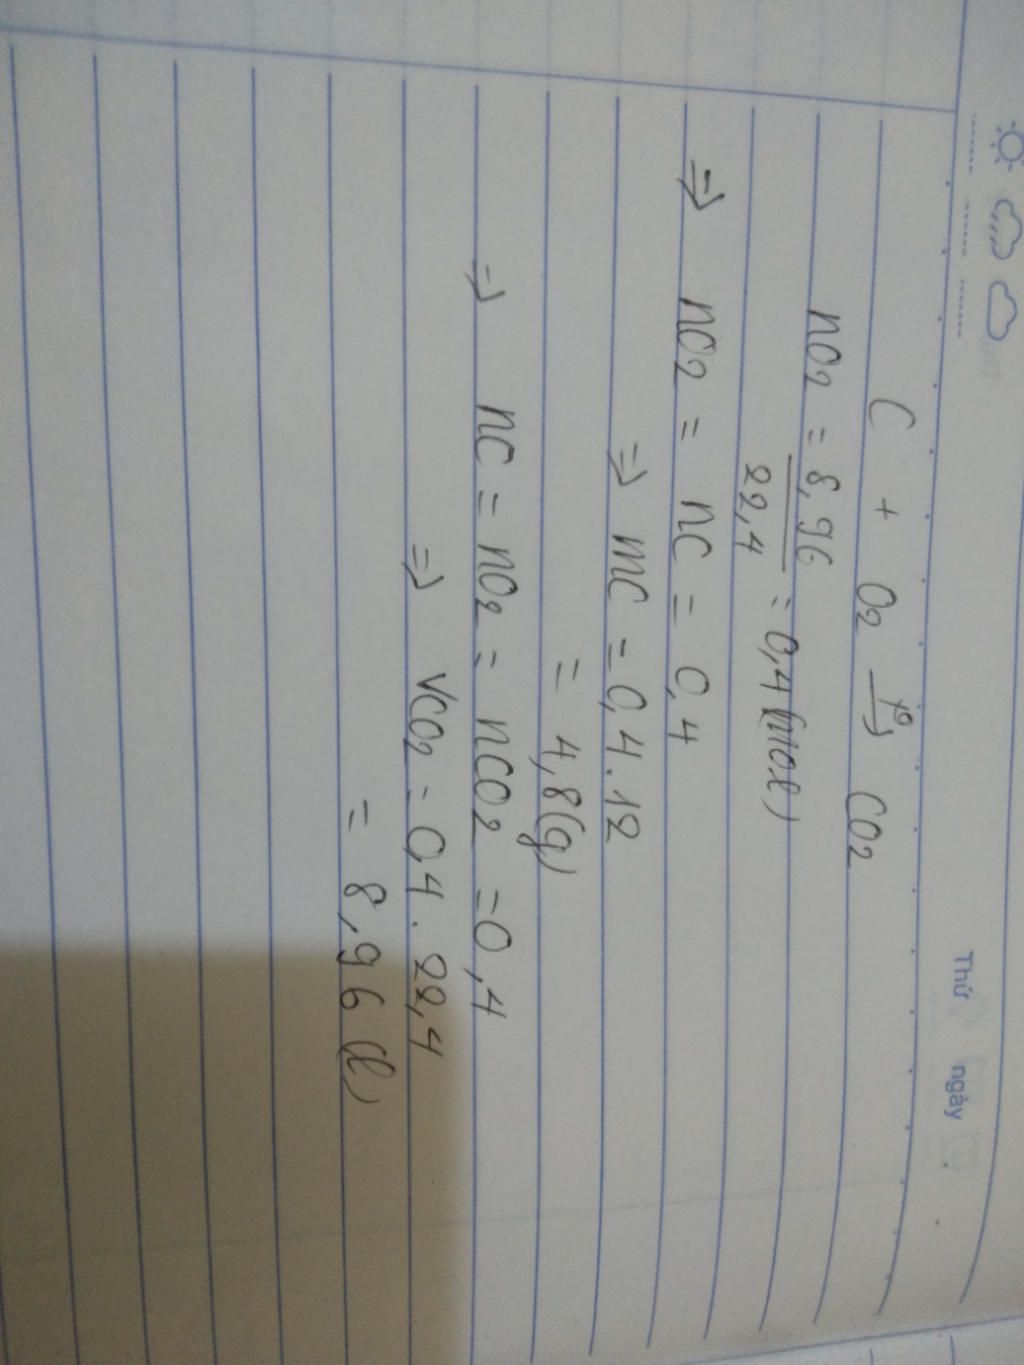 Thứ ngày
C + O2 t° → CO2
nO2 = 8,96 / 22,4 = 0,4 (mol)
⇒ nO2 = nC = 0,4
⇒ mC = 0,4 . 12
= 4,8 (g)
⇒ nC = nO2 = nCO2 = 0,4
⇒ VCO2 = 0,4 . 22,4
= 8,96 (l)